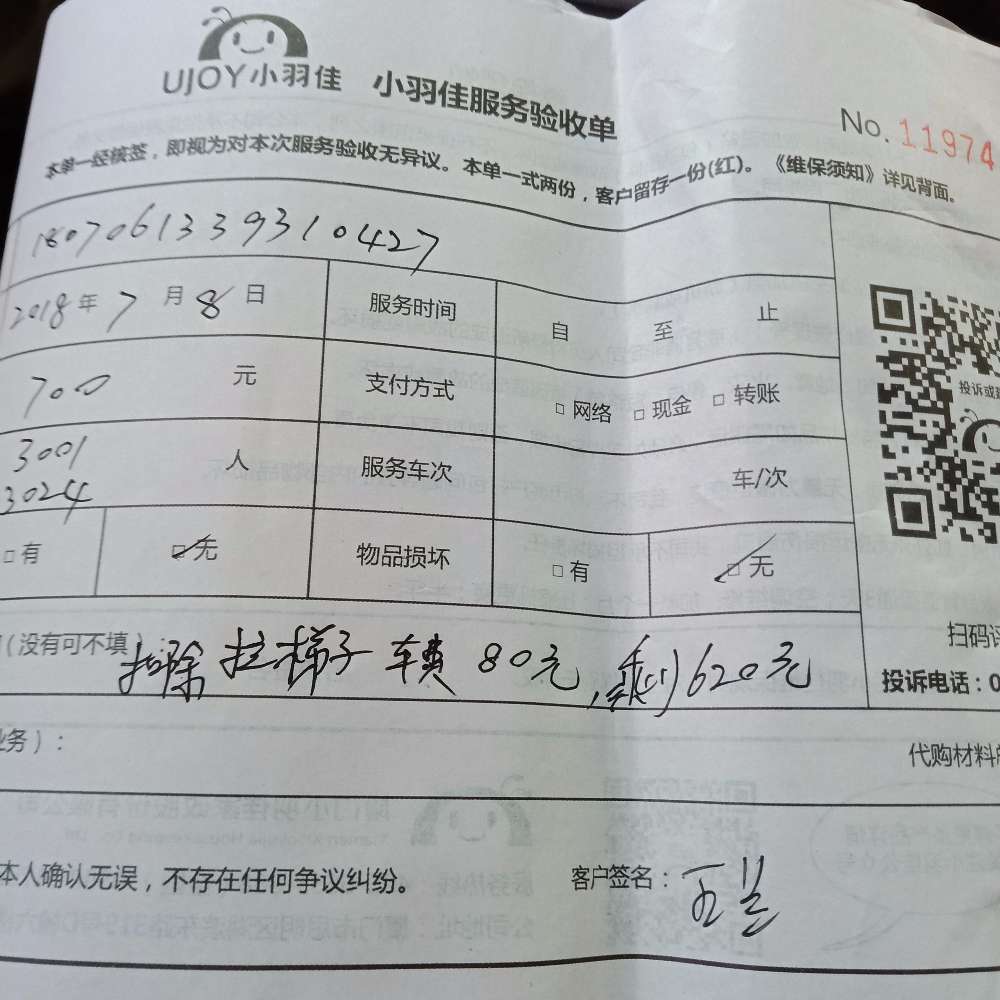 UJOY小羽佳 小羽佳服务验收单 No. 11974
本单一经核签，即视为对本次服务验收无异议。本单一式两份，客户留存一份(红)。《维保须知》详见背面。
180706133931 0427
2018年 7 月 8 日 服务时间 自 至 止
700 元 支付方式 □网络 □现金 □转账
3001 人 服务车次 车/次
3024
□有 □无 物品损坏 □有 □无
投诉或建
(没有可不填)：扣除 拉梯子 车费 80元，剩620元
扫码
投诉电话：0
业务)：
代购材料
本人确认无误，不存在任何争议纠纷。 客户签名：